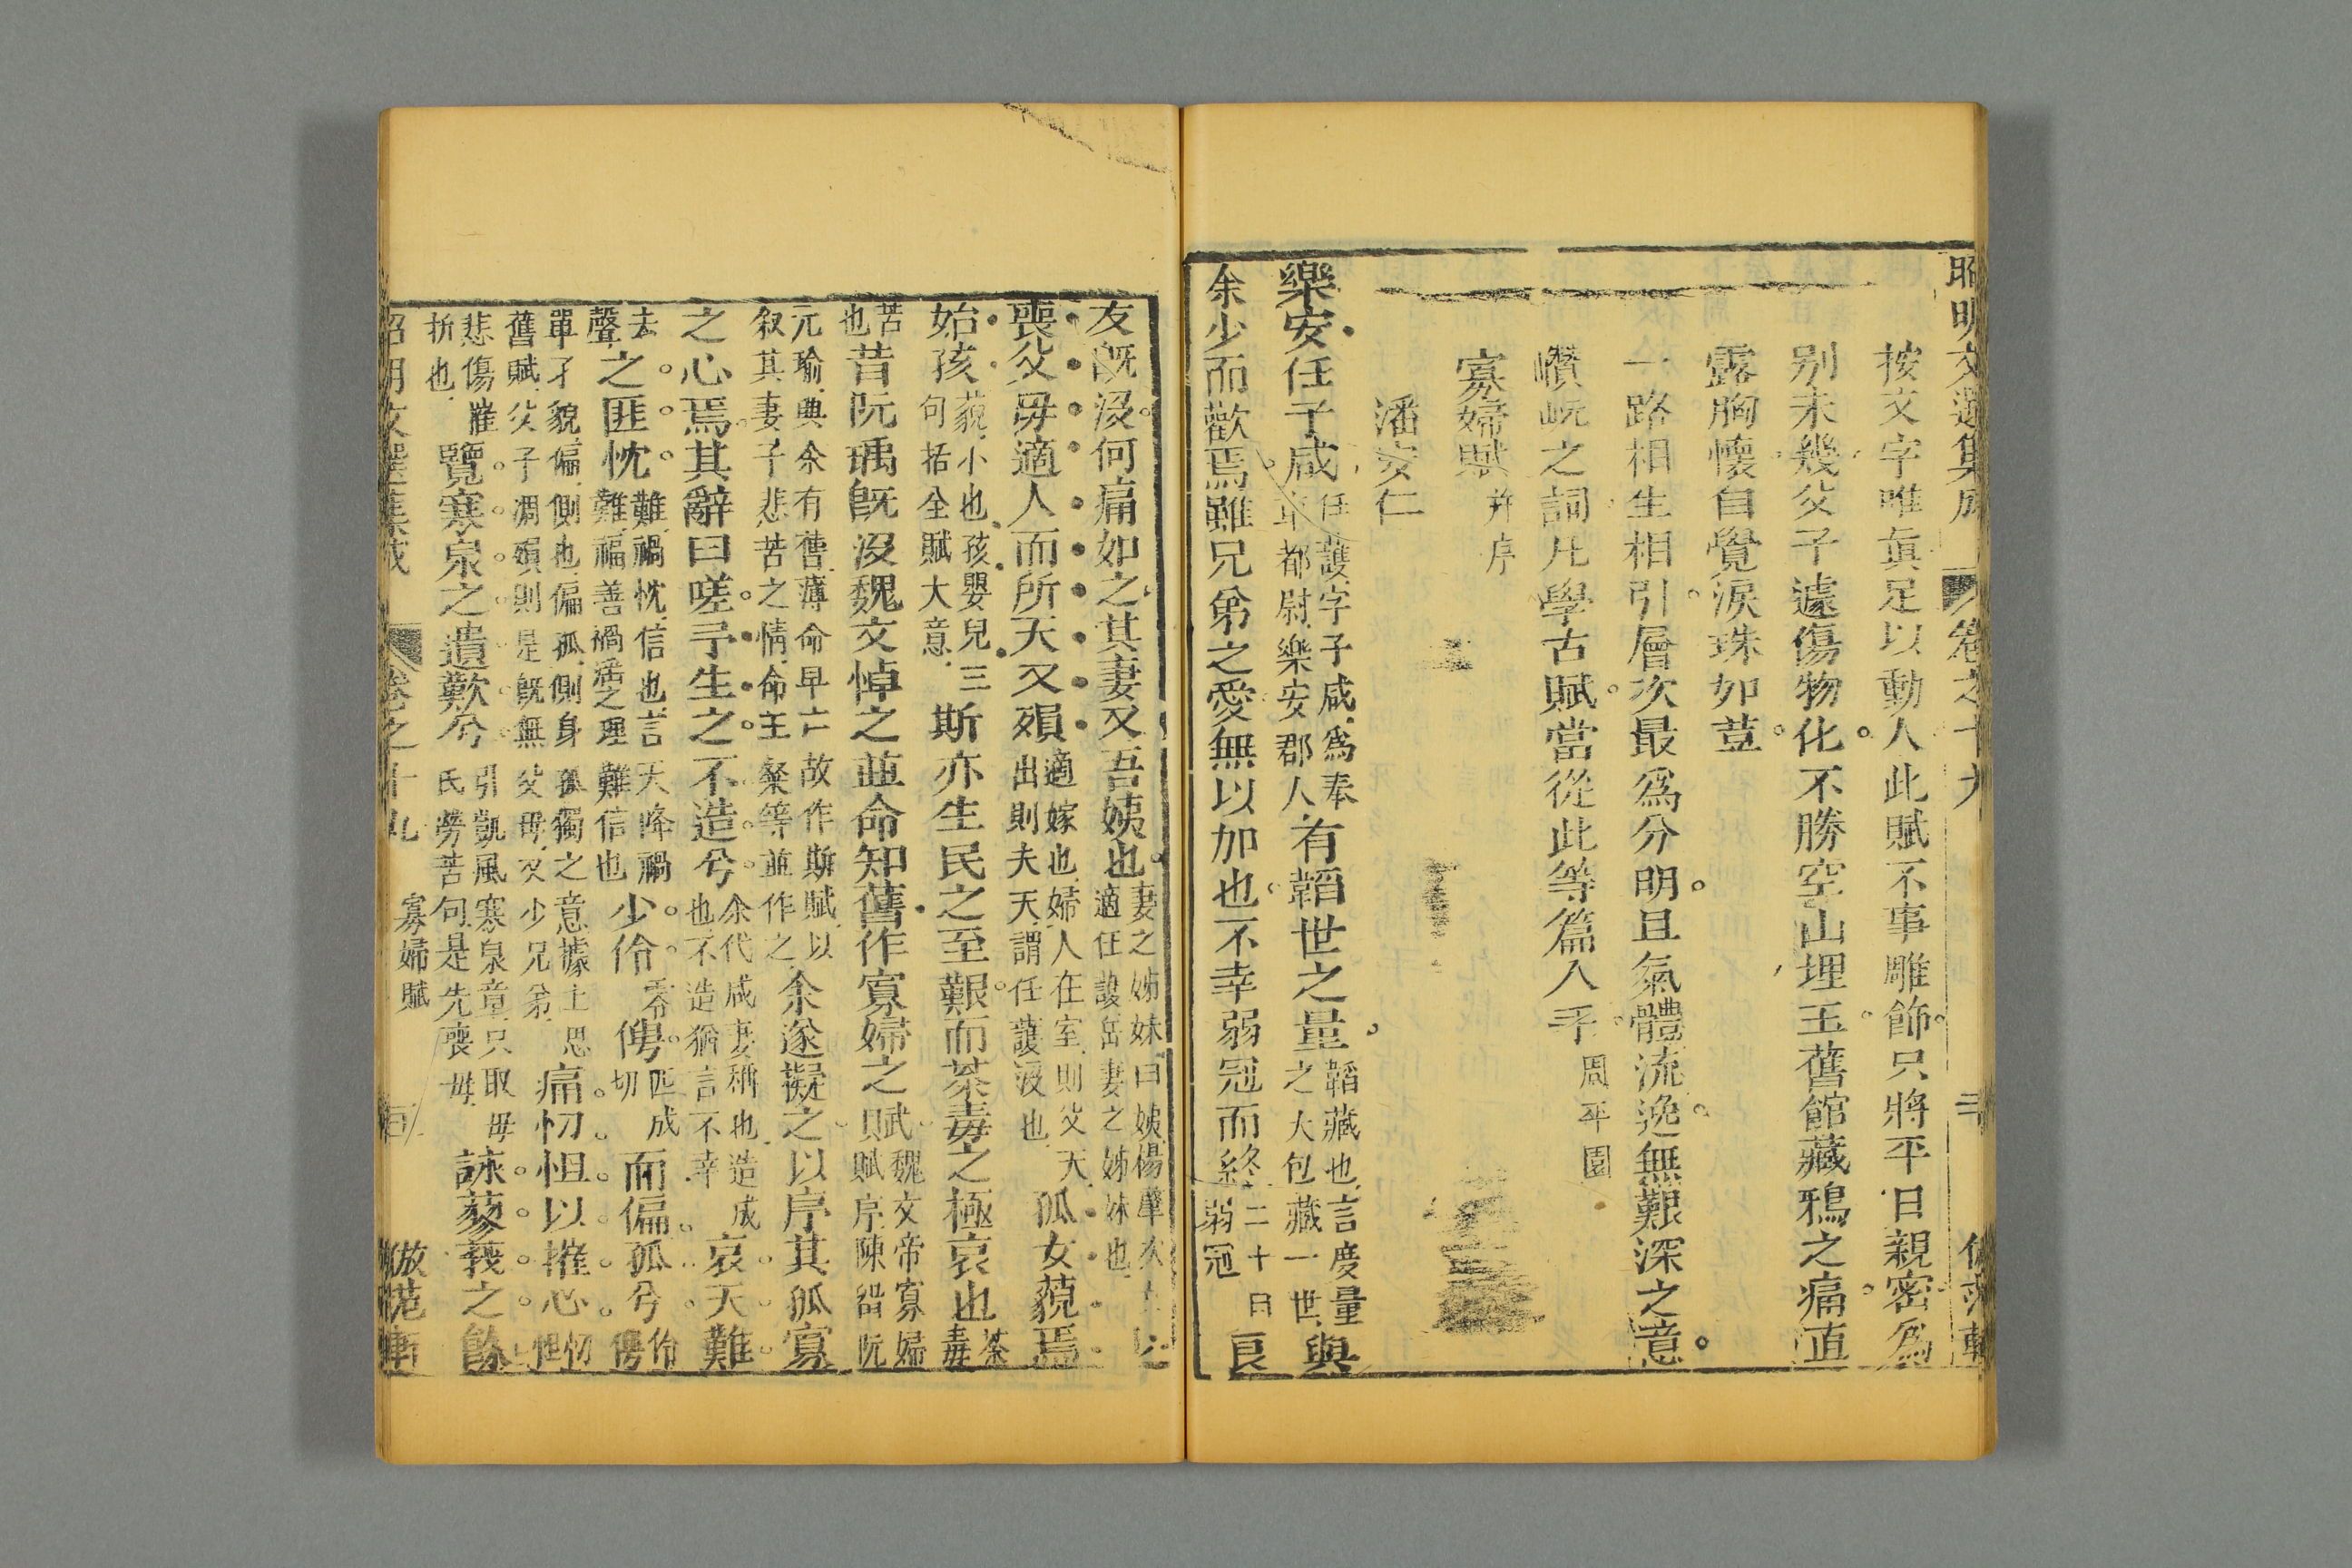 昭明文選集成 卷之十九 二 倣范軒
按文字唯眞足以動人此賦不事雕飾只將平日親密爲
别未幾父子遽傷物化不勝空山埋玉舊館藏鴉之痛直
露胸懷自覺淚珠如荳
一路相生相引層次最爲分明且氣體流逸無艱深之意
巑岏之詞凡學古賦當從此等篇入手周平園
寡婦賦并序
潘安仁
樂安任子咸任護字子咸爲奉車都尉樂安郡人有韜世之量韜藏也言度量之大包藏一世與
余少而歡焉雖兄弟之愛無以加也不幸弱冠而終二十日弱冠良
友旣沒何痛如之其妻又吾姨也妻之姊妹曰姨楊肇次適任護岳妻之姊妹也少
喪父毋適人而所天又殞適嫁也婦人在室則父天出則夫天謂任護沒也孤女藐焉
始孩藐小也孩嬰兒三句括全賦大意斯亦生民之至艱而荼毒之極哀也荼毒
苦也昔阮瑀旣沒魏文悼之並命知舊作寡婦之賦魏文帝寡婦賦序陳畱阮
元瑜與余有舊薄命早亡故作斯賦以叙其妻子悲苦之情命王粲等並作之余遂擬之以序其孤寡
之心焉其辭曰嗟予生之不造兮余代咸妻稱也造成也不造猶言不幸哀天難
去聲之匪忱難禍忱信也言天降禍難福善禍淫之理難信也少伶零俜匹成切而偏孤兮伶俜
單孑貌偏側也偏孤側身孤獨之意據上思舊賦父子凋殞則是旣無父毋又少兄弟痛忉怛以摧心忉怛
悲傷摧折也覽寒泉之遺歎兮引凱風寒泉章只取毋氏勞苦句是先喪毋詠蓼莪之餘
昭明文選集成 卷之十九 寡婦賦 倣范軒